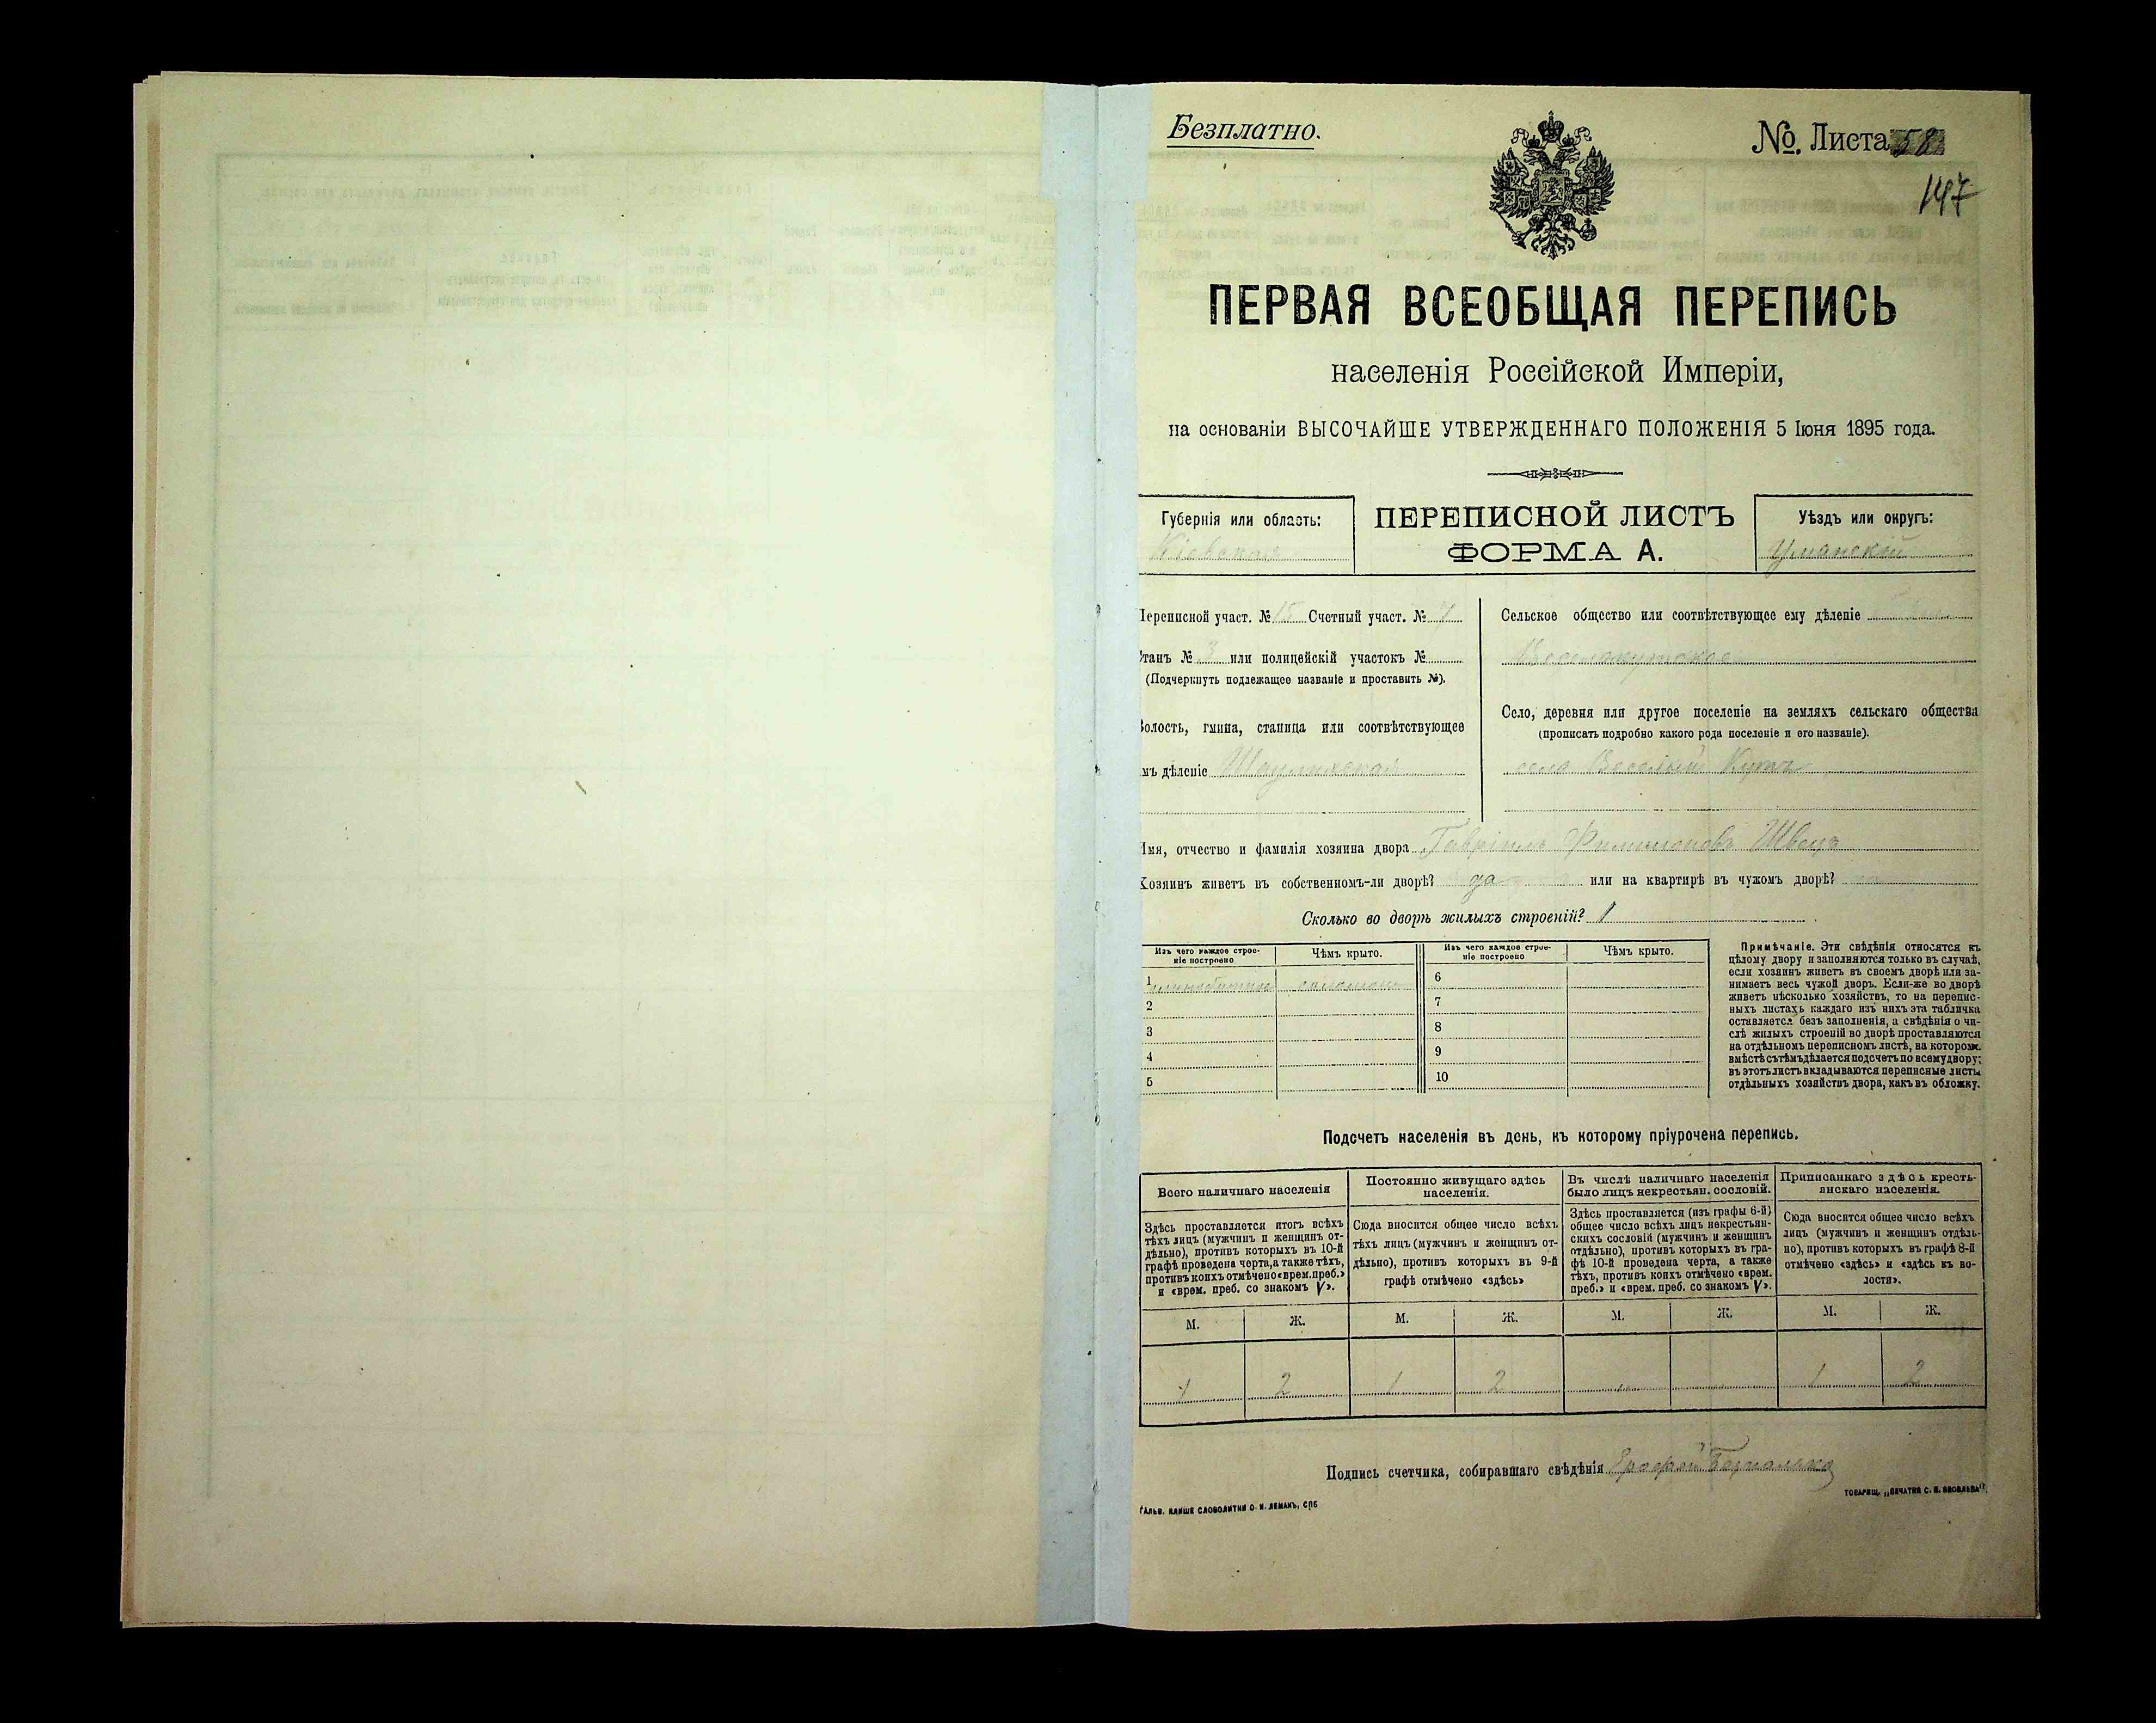 Безплатно.
№. Листа 58
147
ПЕРВАЯ ВСЕОБЩАЯ ПЕРЕПИСЬ
населенія Россійской Имперіи,
на основаніи ВЫСОЧАЙШЕ УТВЕРЖДЕННАГО ПОЛОЖЕНІЯ 5 Іюня 1895 года.
Губернія или область:
Кіевская
ПЕРЕПИСНОЙ ЛИСТЪ
ФОРМА А.
Уѣздъ или округъ:
Уманскій
Переписной участ. № 15 Счетный участ. № 7
Станъ № 3 или полицейскій участокъ №
(Подчеркнуть подлежащее названіе и проставить №).
Волость, гмина, станица или соотвѣтствующее
мъ дѣленіе
Сельское общество или соотвѣтствующее ему дѣленіе
Веселокутское
Село, деревня или другое поселеніе на земляхъ сельскаго общества
(прописать подробно какого рода поселеніе и его названіе).
село Веселый Кутъ
Имя, отчество и фамилія хозяина двора Гавріилъ Филимоновъ Швецъ
Хозяинъ живетъ въ собственномъ-ли дворѣ? да или на квартирѣ въ чужомъ дворѣ?
Сколько во дворѣ жилыхъ строеній? 1
Изъ чего каждое строе-
ніе построено
Чѣмъ крыто.
Изъ чего каждое строе-
ніе построено
Чѣмъ крыто.
1
2
3
4
5
6
7
8
9
10
Примѣчаніе. Эти свѣдѣнія относятся къ
цѣлому двору и заполняются только въ случаѣ,
если хозяинъ живетъ въ своемъ дворѣ или за-
нимаетъ весь чужой дворъ. Если-же во дворѣ
живетъ нѣсколько хозяйствъ, то на перепис-
ныхъ листахъ каждаго изъ нихъ эта табличка
оставляется безъ заполненія, а свѣдѣнія о чи-
слѣ жилыхъ строеній во дворѣ проставляются
на отдѣльномъ переписномъ листѣ, на которомъ
вмѣстѣ съ тѣмъ дѣлается подсчетъ по всему двору;
въ этотъ листъ вкладываются переписные листы
отдѣльныхъ хозяйствъ двора, какъ въ обложку.
Подсчетъ населенія въ день, къ которому пріурочена перепись.
Всего наличнаго населенія
Здѣсь проставляется итогъ всѣхъ
тѣхъ лицъ (мужчинъ и женщинъ от-
дѣльно), противъ которыхъ въ 10-й
графѣ проведена черта, а также тѣхъ,
противъ коихъ отмѣчено «врем. преб.»
и «врем. преб. со знакомъ V».
Постоянно живущаго здѣсь
населенія.
Сюда вносится общее число всѣхъ
тѣхъ лицъ (мужчинъ и женщинъ от-
дѣльно), противъ которыхъ въ 9-й
графѣ отмѣчено «здѣсь»
Въ числѣ наличнаго населенія
было лицъ некрестьян. сословій.
Здѣсь проставляется (изъ графы 6-й)
общее число всѣхъ лицъ некрестьян-
скихъ сословій (мужчинъ и женщинъ
отдѣльно), противъ которыхъ въ гра-
фѣ 10-й проведена черта, а также
тѣхъ, противъ коихъ отмѣчено «врем.
преб.» и «врем. преб. со знакомъ V».
Приписаннаго здѣсь кресть-
янскаго населенія.
Сюда вносится общее число всѣхъ
лицъ (мужчинъ и женщинъ отдѣль-
но), противъ которыхъ въ графѣ 8-й
отмѣчено «здѣсь» и «здѣсь къ во-
лости».
М. Ж. М. Ж. М. Ж. М. Ж.
1 2 1 2 1 2
Подпись счетчика, собиравшаго свѣдѣнія
ГАЛЬВ. КЛИШЕ СЛОВОЛИТНИ О. И. ЛЕМАНЪ, СПБ
ТОВАРИЩ. „ПЕЧАТНЯ С. П. ЯКОВЛЕВА".